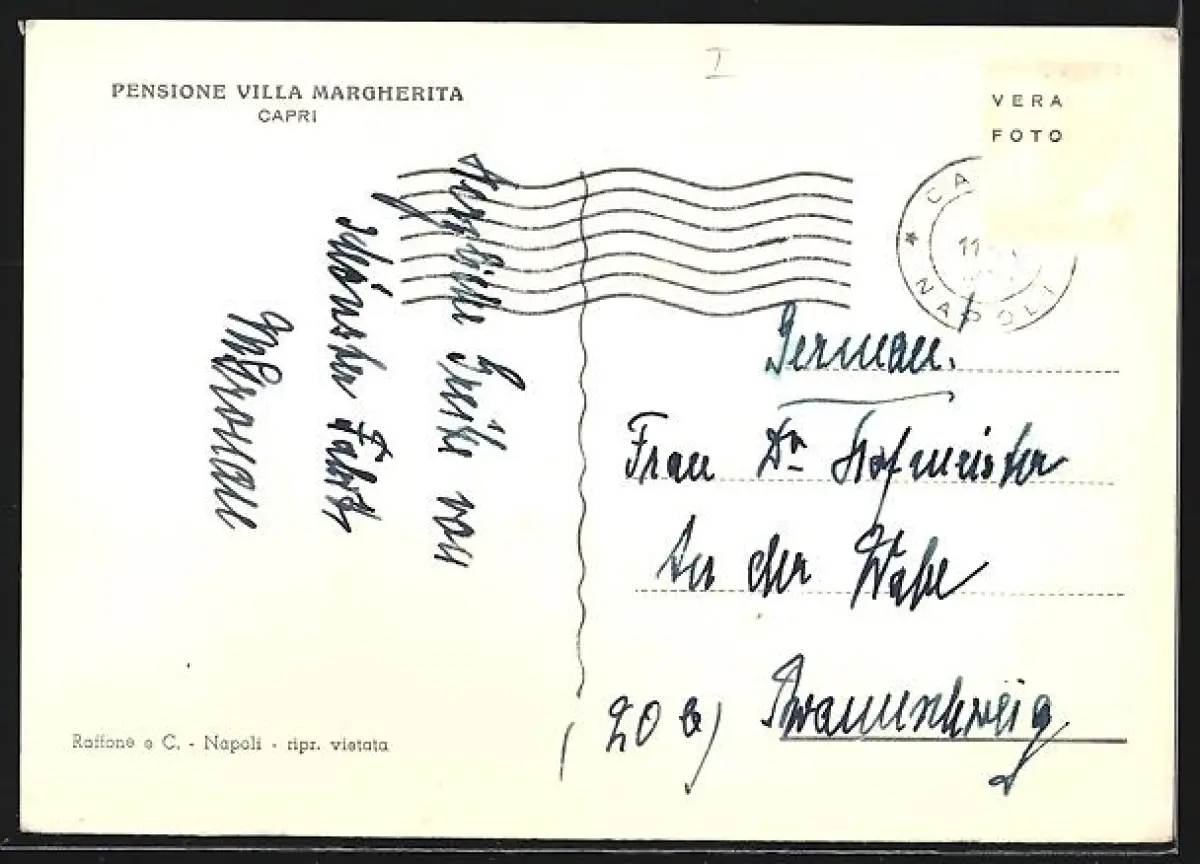 PENSIONE VILLA MARGHERITA
CAPRI
I
VERA
FOTO
* NAPOLI
11
Grüße von
schönster Fahrt
German.
Frau Dr Hofmeister
An der Wabe
(20 b) Braunschweig
Raffone e C. - Napoli - ripr. vietata